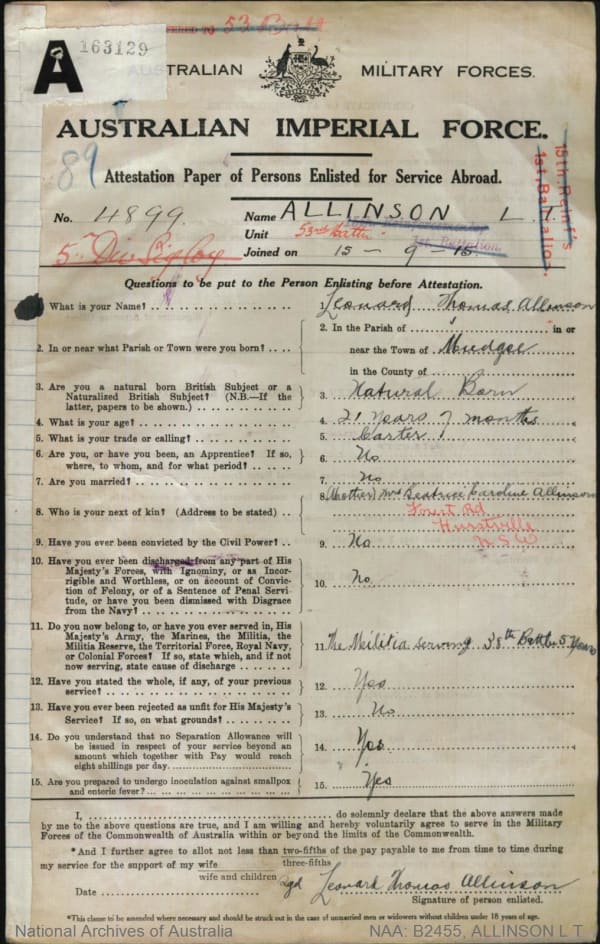 53 Battn
163129
A
AUSTRALIAN MILITARY FORCES.
AUSTRALIAN IMPERIAL FORCE.
89
Attestation Paper of Persons Enlisted for Service Abroad.
15th Reinf's
1st Battalion.
No. 4899. Name ALLINSON L. T.
Unit 53rd Battn 1st Battalion.
5th Div Sig Coy Joined on 15 - 9 - 15
Questions to be put to the Person Enlisting before Attestation.
What is your Name? Leonard Thomas Allinson
2. In or near what Parish or Town were you born? 2. In the Parish of in or
near the Town of Mudgee
in the County of
3. Are you a natural born British Subject or a Naturalized British Subject? (N.B.—If the latter, papers to be shown.) 3. Natural Born
4. What is your age? 4. 21 years 7 months
5. What is your trade or calling? 5. Carter
6. Are you, or have you been, an Apprentice? If so, where, to whom, and for what period? 6. No
7. Are you married? 7. No
8. Who is your next of kin? (Address to be stated) 8. (Mother) Mrs Beatrice Caroline Allinson
Forest Rd
Hurstville
N.S.W
9. Have you ever been convicted by the Civil Power? 9. No
10. Have you ever been discharged from any part of His
Majesty's Forces, with Ignominy, or as Incor-
rigible and Worthless, or on account of Convic-
tion of Felony, or of a Sentence of Penal Servi-
tude, or have you been dismissed with Disgrace
from the Navy? 10. No
11. Do you now belong to, or have you ever served in, His
Majesty's Army, the Marines, the Militia, the
Militia Reserve, the Territorial Force, Royal Navy,
or Colonial Forces? If so, state which, and if not
now serving, state cause of discharge 11. The Militia serving 38th Battn 5 years
12. Have you stated the whole, if any, of your previous
service? 12. Yes
13. Have you ever been rejected as unfit for His Majesty's
Service? If so, on what grounds? 13. No
14. Do you understand that no Separation Allowance will
be issued in respect of your service beyond an
amount which together with Pay would reach
eight shillings per day. 14. Yes
15. Are you prepared to undergo inoculation against smallpox
and enteric fever? 15. Yes
I, do solemnly declare that the above answers made
by me to the above questions are true, and I am willing and hereby voluntarily agree to serve in the Military
Forces of the Commonwealth of Australia within or beyond the limits of the Commonwealth.
*And I further agree to allot not less than two-fifths of the pay payable to me from time to time during
three-fifths
my service for the support of my wife
wife and children
Date sgd Leonard Thomas Allinson
Signature of person enlisted.
*This clause to be amended where necessary and should be struck out in the case of unmarried men or widowers without children under 18 years of age.
National Archives of Australia NAA: B2455, ALLINSON L T